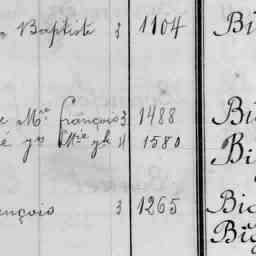 Baptiste 3 1104 Bi
Me françois 3 1488 Bi
Mie 4 1580 Bi
ençois 3 1265 Big
Big